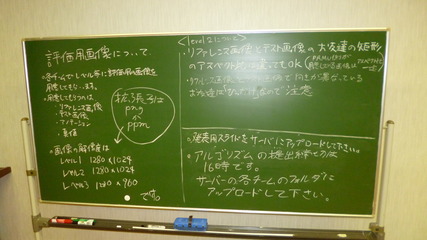 評価用画像について
・各チームでレベル毎に評価用画像を
用意してもらいます。
・用意してもらうのは
・リファレンス画像
・テスト画像
・アノテーション
・真値
拡張子は
png
か
ppm
・画像の解像度は
レベル1 1280×1024
レベル2 1280×1024
レベル3 1280×960
です。
<level2について>
・リファレンス画像とテスト画像のお友達の矩形
のアスペクト比は違ってもOK
・発表用スライドをサーバにアップロードして下さい。
・アルゴリズムの提出締切は
16時です。
サーバーの各チームのフォルダに
アップロードして下さい。